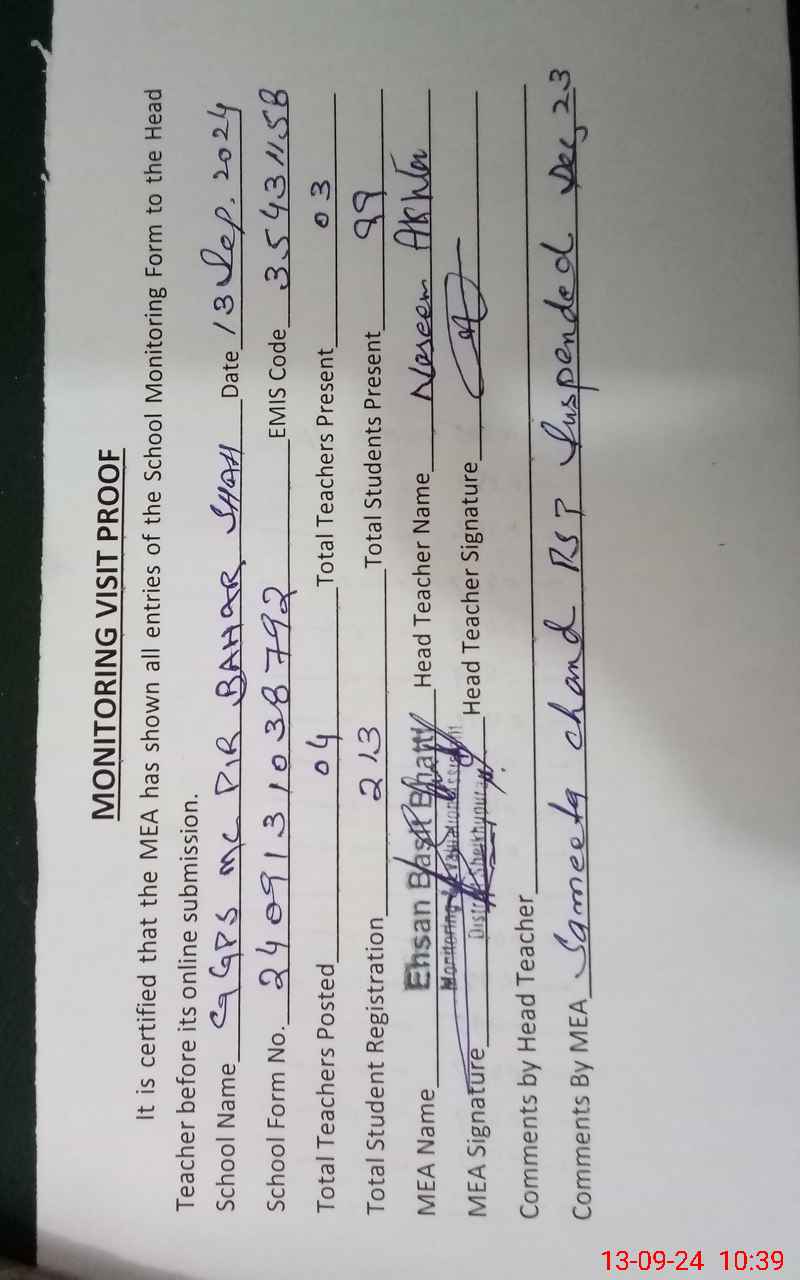 MONITORING VISIT PROOF
It is certified that the MEA has shown all entries of the School Monitoring Form to the Head
Teacher before its online submission.
School Name GGPS MC PIR BAHAR SHAH Date 13 Sep. 2024
School Form No. 2409131038792 EMIS Code 35431158
Total Teachers Posted 04 Total Teachers Present 03
Total Student Registration 213 Total Students Present 99
MEA Name Ehsan Basit Bhatti Head Teacher Name Naseem Akhter
Monitoring
MEA Signature District Sheikhupura Head Teacher Signature
Comments by Head Teacher
Comments By MEA Sameeta chand PST Suspended Dec, 23
13-09-24 10:39